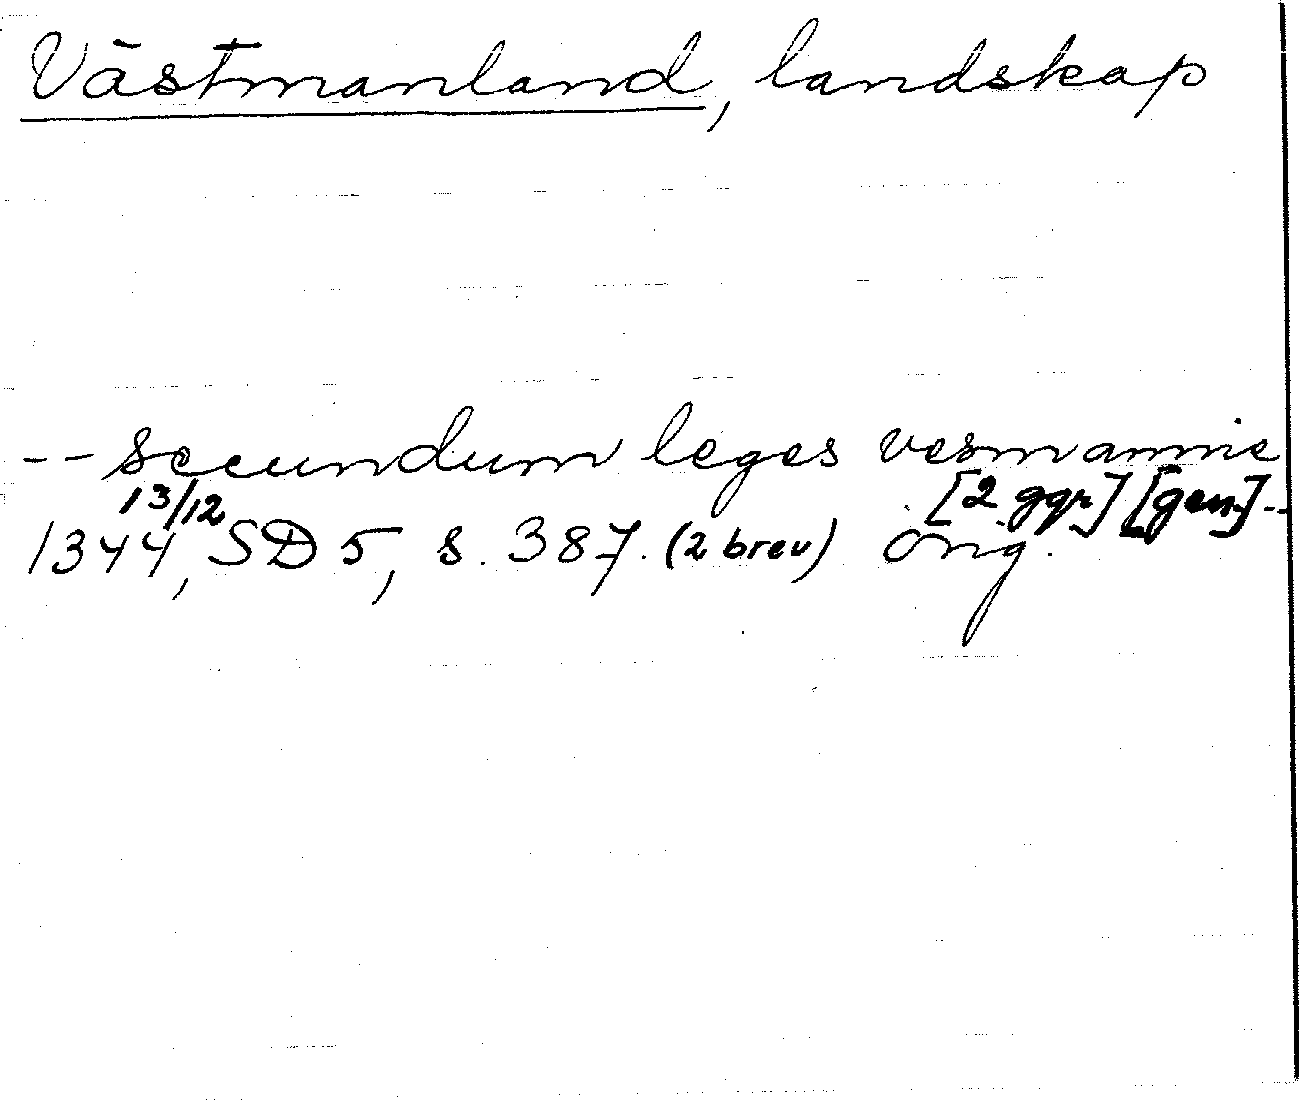 Västmanland, landskap
-- secundum leges vesmannie
[2 ggr] [gen.] --
13/12
1344, SD 5, s. 387. (2 brev) orig.